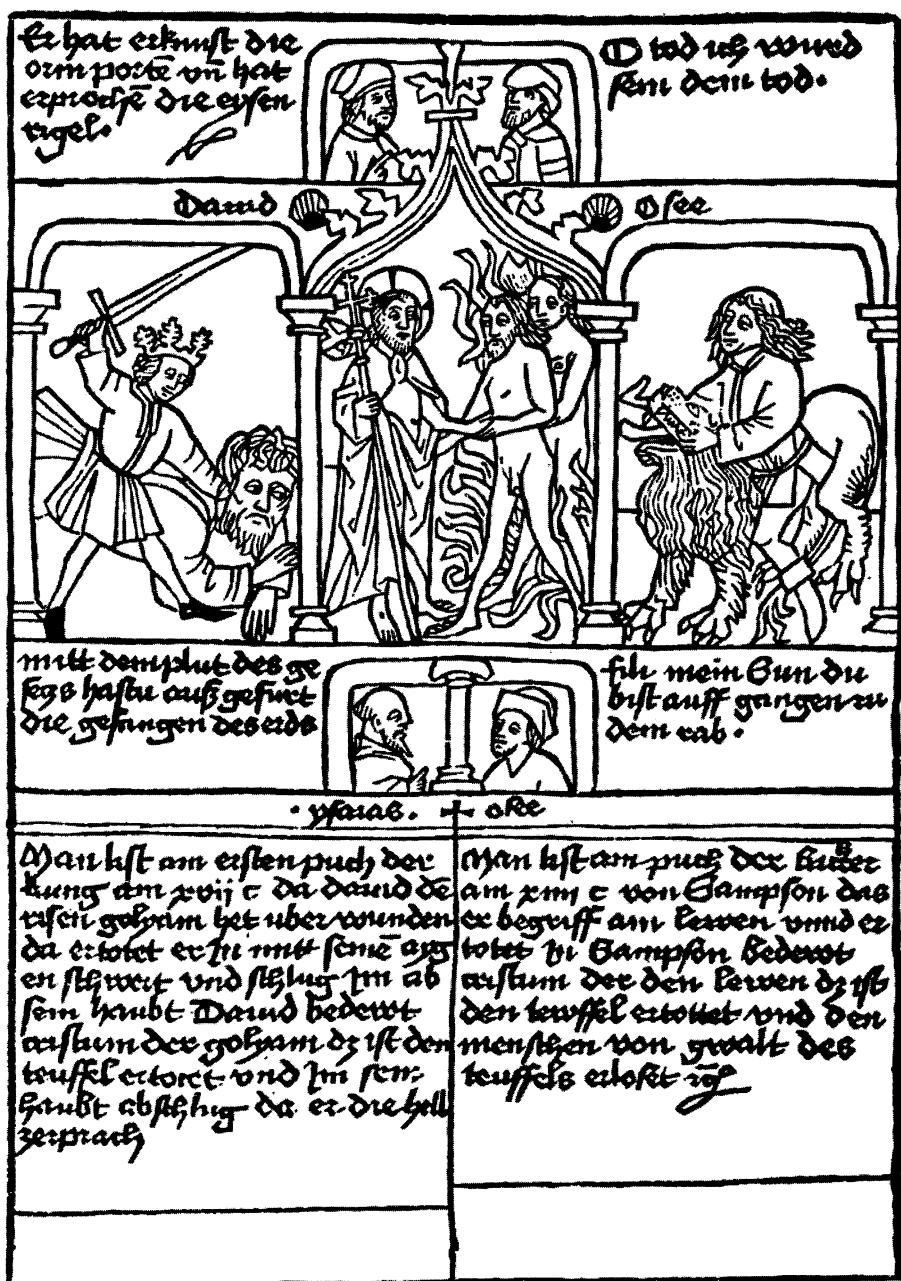 Er hat erknist die
orin portē vn̄ hat
erprochē die eysen
rigel.
O tod ich wurd
sein dem tod.
Dauid
Osee
mitt dem plut des ge
secz hastu auß gefurt
die gefangen des erds
fili mein Sun du
bist auff gangen zu
dem rab.
. ysaias. + osee
Man list am ersten puch der
kung am xvij c da dauid dē
risen golyam het uber wunden
da ertotet er In mitt seinē ayg
en schwert vnd schlug Im ab
sein haubt Dauid bedewt
cristum der golyam dz ist den
teuffel ertotet vnd Im sein
haubt abschlug da er die hell
zerprach
Man list am puch der Richter
am xiiij c von Sampson das
er begriff ain lewen vnnd er
totet In Sampson bedewt
cristum der den lewen dz ist
den tewffel ertottet vnd den
menschen von gwalt des
teuffels erloset